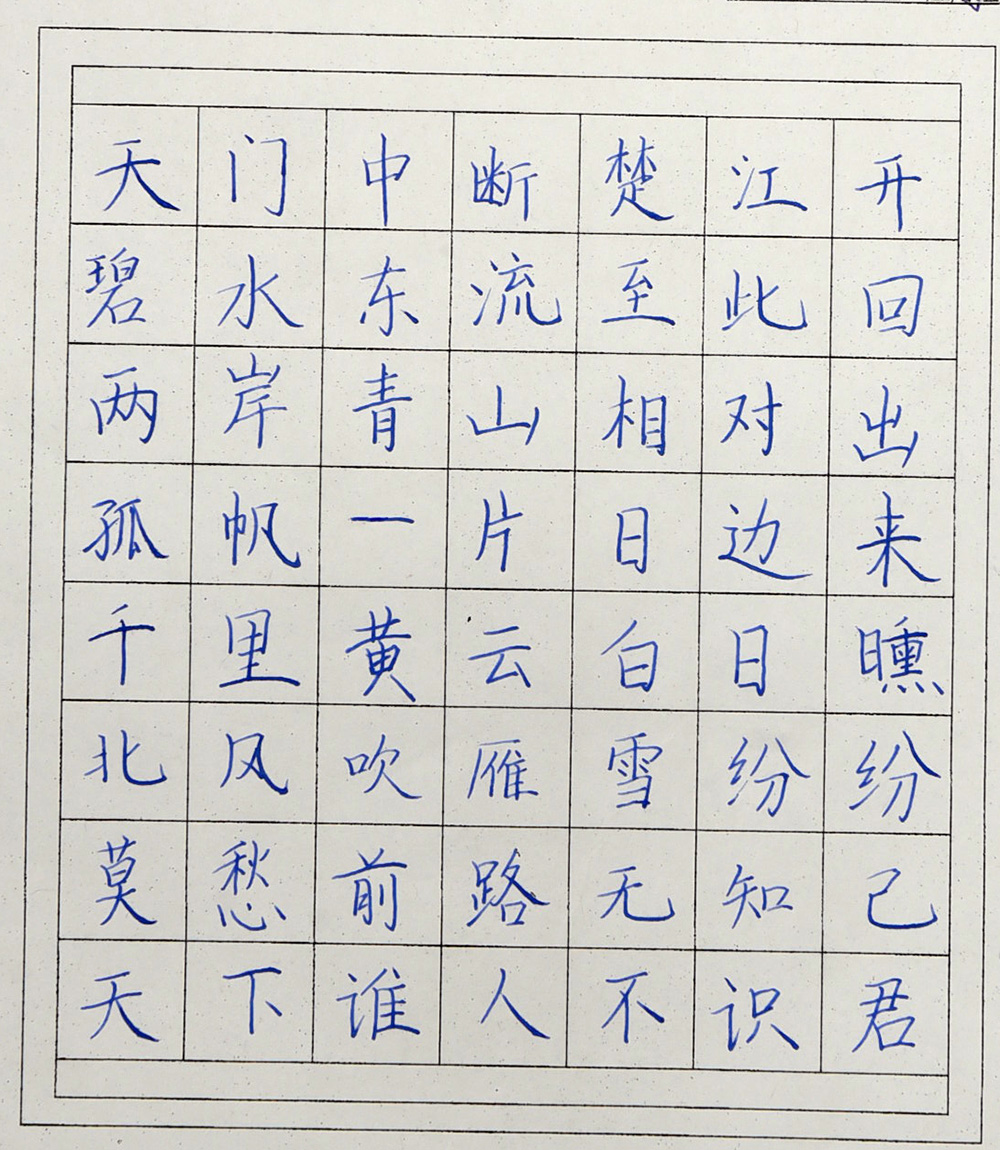 天门中断楚江开
碧水东流至此回
两岸青山相对出
孤帆一片日边来
千里黄云白日曛
北风吹雁雪纷纷
莫愁前路无知己
天下谁人不识君